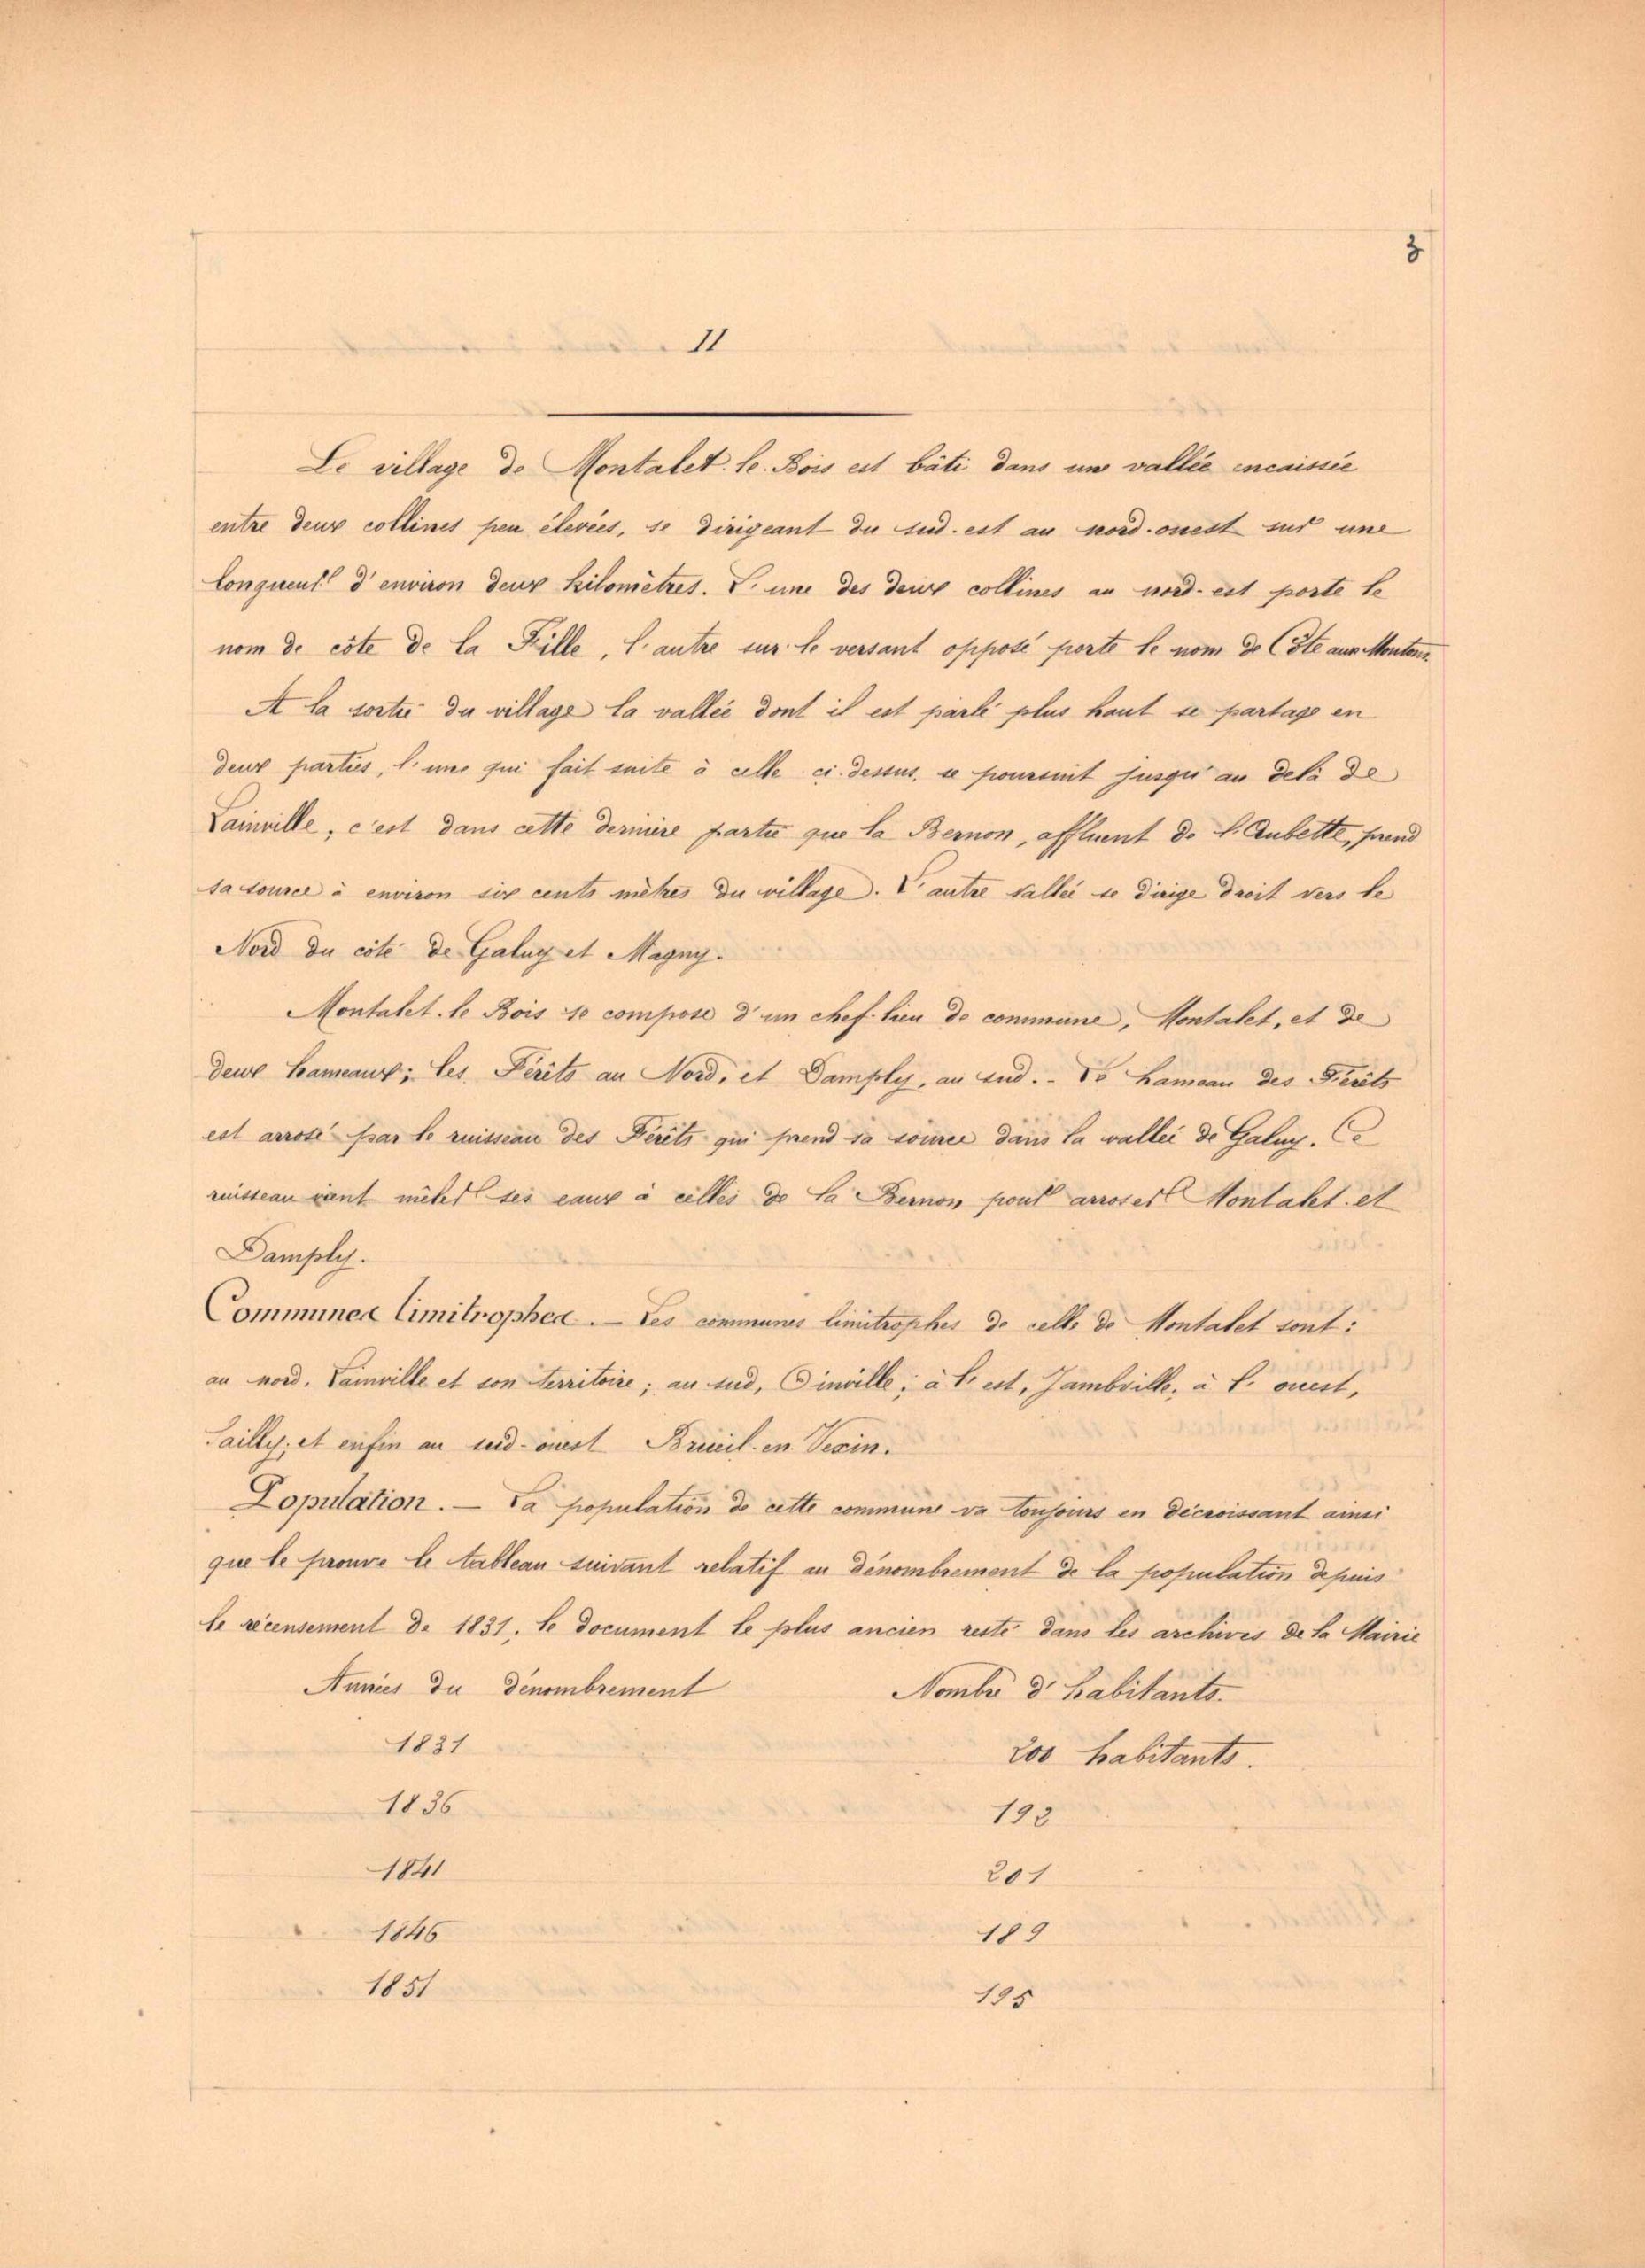 3
II
Le village de Montalet-le-Bois est bâti dans une vallée encaissée
entre deux collines peu élevées, se dirigeant du sud-est au nord-ouest sur une
longueur d'environ deux kilomètres. L'une des deux collines au nord-est porte le
nom de côte de la Fille, l'autre sur le versant opposé porte le nom de Côte aux Moutons.
A la sortie du village la vallée dont il est parlé plus haut se partage en
deux parties, l'une qui fait suite à celle ci-dessus, se poursuit jusqu'au delà de
Lainville; c'est dans cette dernière partie que la Bernon, affluent de l'Aubette, prend
sa source à environ six cents mètres du village. L'autre vallée se dirige droit vers le
Nord du côté de Galuy et Magny.
Montalet-le Bois se compose d'un chef-lieu de commune, Montalet, et de
deux hameaux; les Férêts au Nord, et Damply, au sud. - Le hameau des Férêts
est arrosé par le ruisseau des Férêts qui prend sa source dans la vallée de Galuy. Ce
ruisseau vient mêler ses eaux à celles de la Bernon pour arroser Montalet et
Damply.
Communes limitrophes. — Les communes limitrophes de celle de Montalet sont:
au nord, Lainville et son territoire; au sud, Oinville; à l'est, Jambville; à l'ouest,
Sailly; et enfin au sud-ouest Brueil-en-Vexin.
Population. — La population de cette commune va toujours en décroissant ainsi
que le prouve le tableau suivant relatif au dénombrement de la population depuis
le récensement de 1831, le document le plus ancien resté dans les archives de la Mairie
Années du dénombrement Nombre d'habitants.
1831 200 habitants.
1836 192
1841 201
1846 189
1851 195